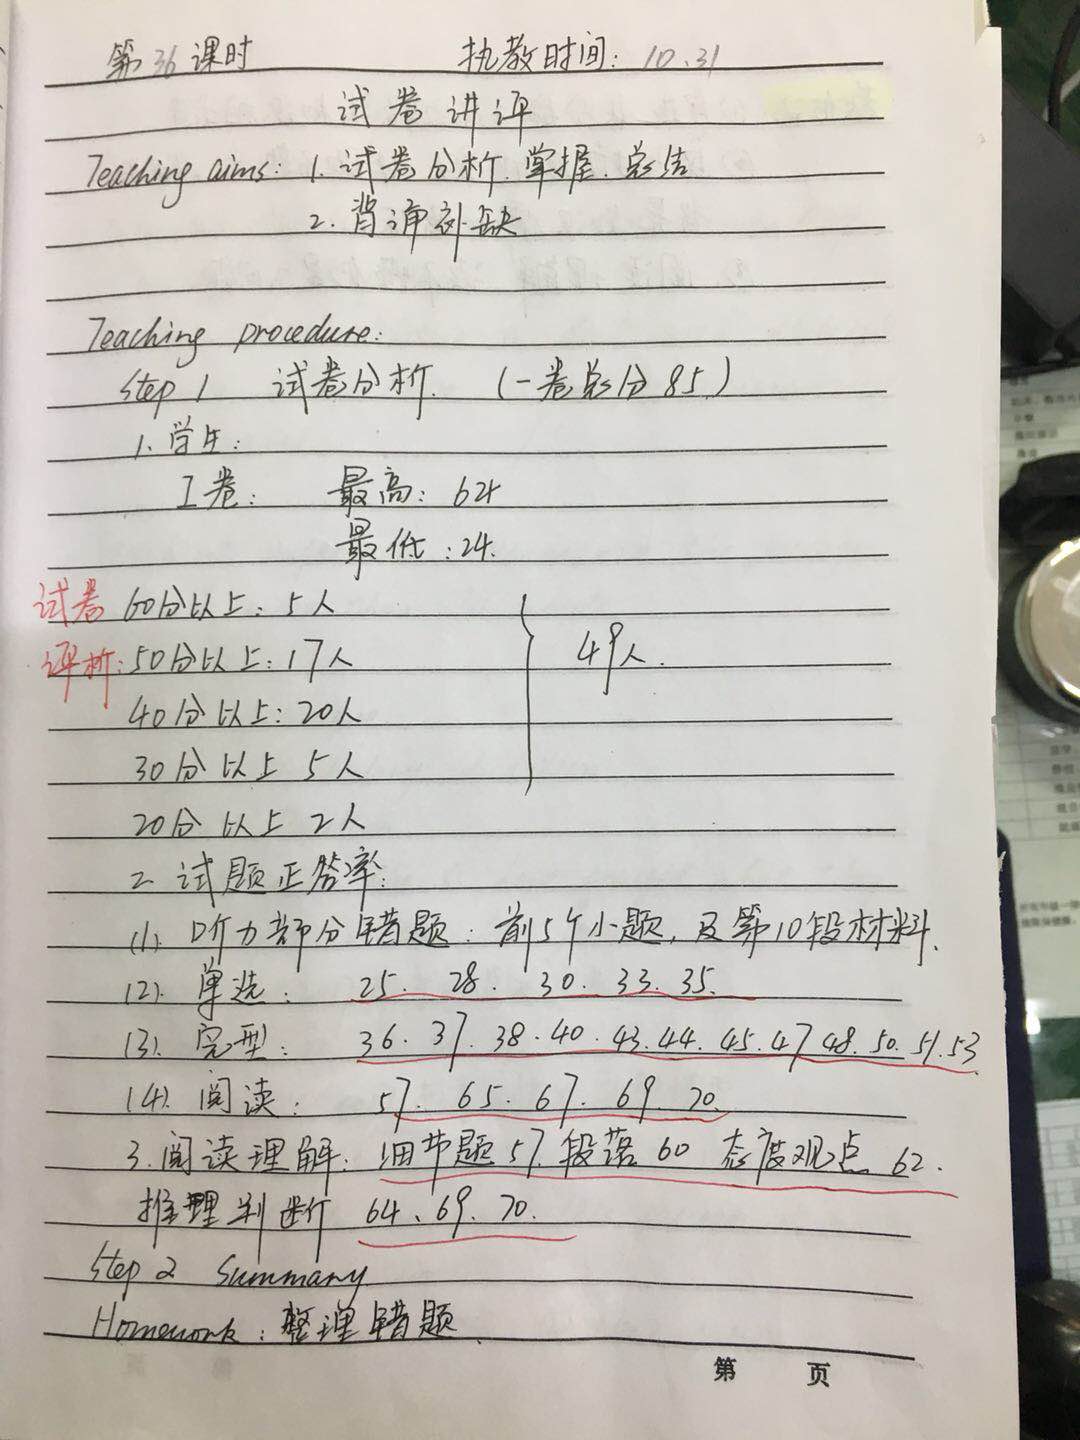 第36课时 执教时间：10.31
试卷讲评
Teaching aims: 1. 试卷分析、掌握、总结
2. 背诵补缺
Teaching procedure:
Step 1 试卷分析. (一卷总分85)
1. 学生：
I卷： 最高：64
最低：24.
试卷 60分以上：5人
评析：50分以上：17人 49人.
40分以上：20人
30分以上 5人
20分以上 2人
2. 试题正答率：
(1). 听力部分错题：前5个小题，及第10段材料.
(2). 单选： 25. 28. 30. 33. 35.
(3). 完型： 36. 37. 38. 40. 43. 44. 45. 47 48. 50. 51. 53
(4). 阅读： 57. 65. 67. 69. 70.
3. 阅读理解：细节题57. 段落60 态度观点 62.
推理判断 64、69、70.
Step 2 Summary
Homework：整理错题.
第 页